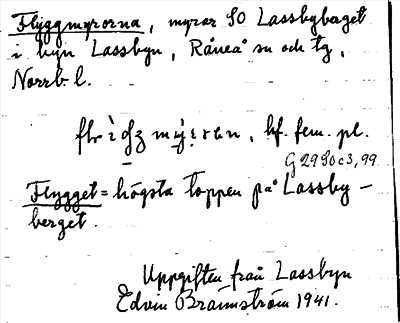 Flyggmyrorna, myrar SO Lassbyberget
i byn Lassbyn, Råneå sn och tg,
Norrb. l.
bf. fem. pl.
G 2980c3,99
Flygget = högsta toppen på Lassby-
berget.
Uppgiften från Lassbyn
Edvin Brännström 1941.